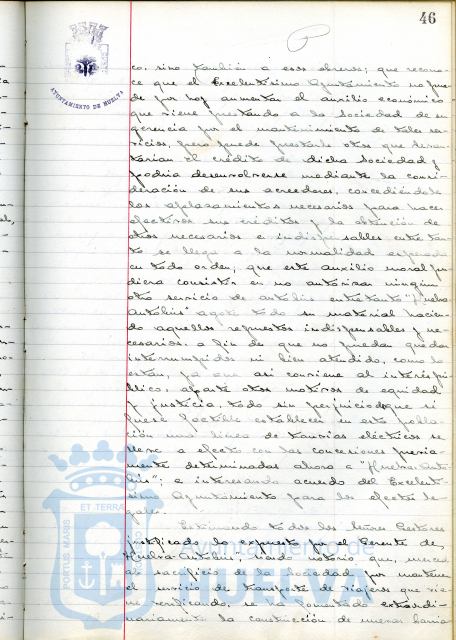 46
AYUNTAMIENTO DE HUELVA
co, sino también a esos obreros; que recono-
ce que el Excelentísimo Ayuntamiento no pue-
de por hoy aumentar el auxilio económico
que viene prestando a la Sociedad de su
gerencia por el mantenimiento de tales ser-
vicios, pero puede prestarle otros que levan-
tarían el crédito de dicha Sociedad y
podría desenvolverse mediante la consi-
deración de sus acreedores, concediéndole
los aplazamientos necesarios para hacer
efectivos sus créditos y la obtención de
otros necesarios e indispensables entre tan-
to se llega a la normalidad esperada
en todo orden; que este auxilio moral pu-
diera consistir en no autorizar ningún
otro servicio de autobús entretanto "Huelva
Autobús" agote todo su material hacien-
do aquellos repuestos indispensables y ne-
cesarios a fin de que no puedan quedar
interrumpidos ni bien atendido, como lo
están, ya que así conviene al interés pú-
blico, aparte otros motivos de equidad
y justicia, todo sin perjuicio de que si
fuese factible establecer en esta pobla-
ción una línea de tranvías eléctricos se
lleve a efecto con las concesiones previa-
mente determinadas ahora a "Huelva Auto-
bús"; e interesando acuerdo del Excelen-
tísimo Ayuntamiento para los efectos le-
gales.
Estimando todos los señores Gestores
justificado lo expuesto por el Gerente de
Huelva Autobús, siendo notorio que, merced
al sacrificio de la Sociedad por mantener
el servicio de transporte de viajeros que vie-
ne verificando, se ha fomentado extraordi-
nariamente la construcción de nuevas barria
PORTUS MARIS ET TERRAE
Ayuntamiento de
HUELVA